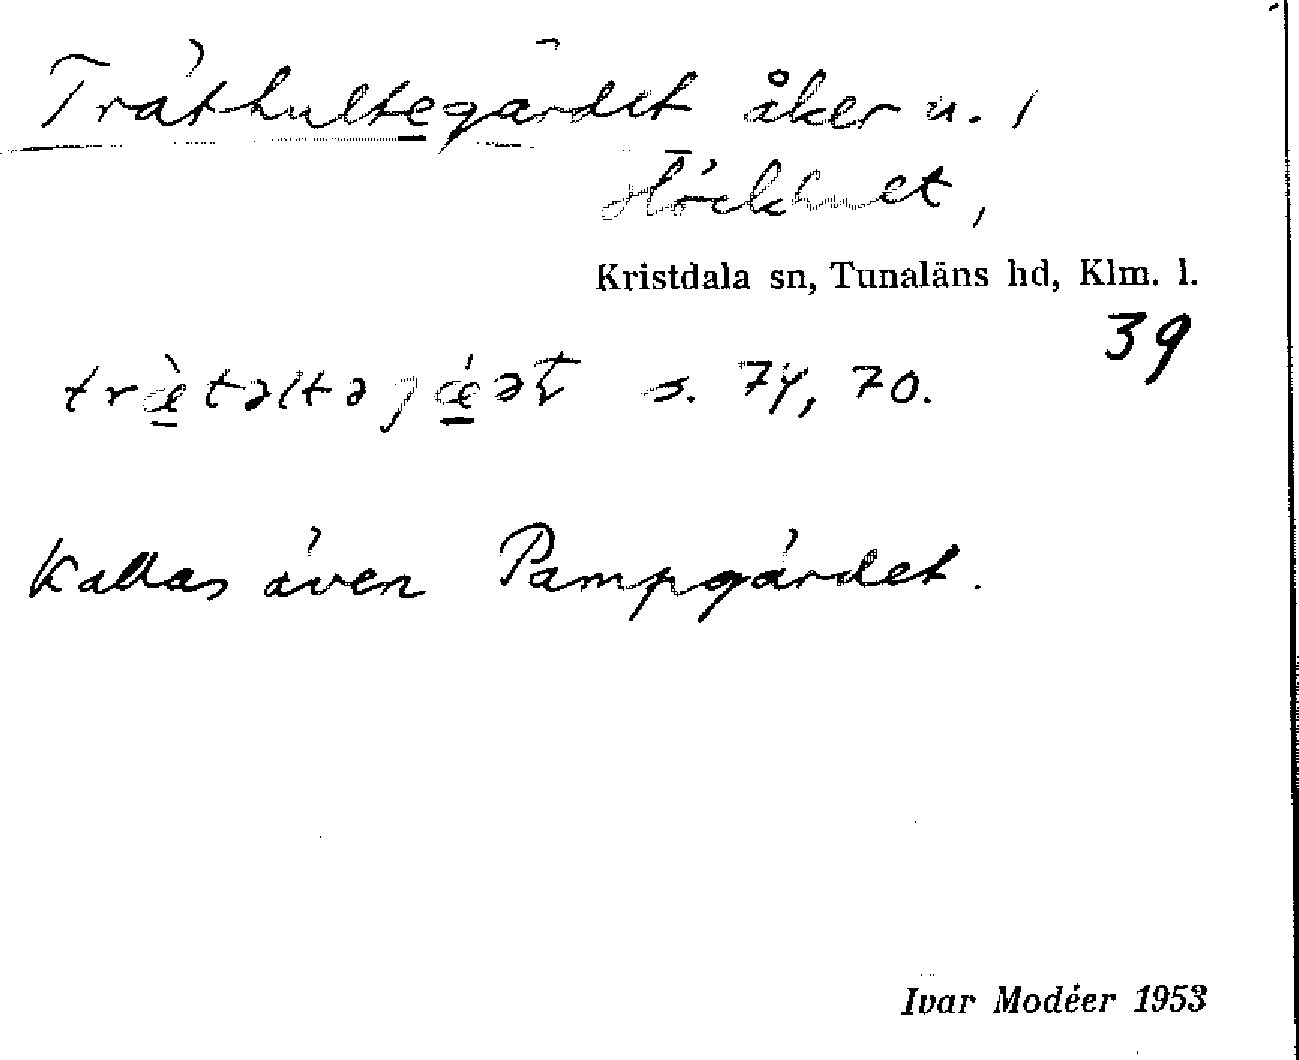 Träthultegärdet åker u. 1
Höckhult,
Kristdala sn, Tunaläns hd, Klm. l.
39
s. 74, 70.
Kallas även Pampgärdet.
Ivar Modéer 1953